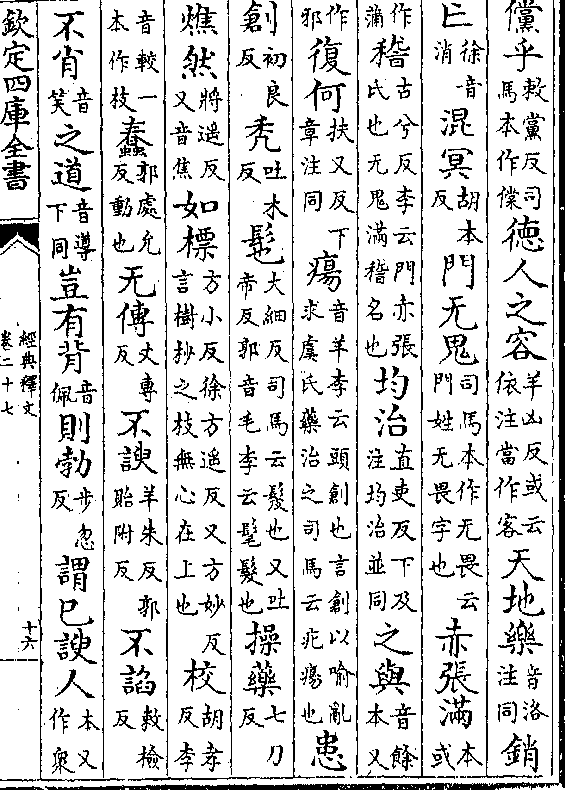 儻乎敕黨反司馬本作僕德人之容羊凶反或云依注當作客天地樂音洛注同銷
亡徐音消混冥胡本反門无鬼司馬本作无畏云門姓无畏字也赤張滿本或
作蒲稽古兮反李云門亦張氏也无鬼滿稽名也均治直吏反下及注均治並同之與音餘本又
作邪復何扶又反下章注同瘍音羊李云頭創也言創以喻亂求虞氏藥治之司馬云疕瘍也患
創初良反秃吐木反髢大細反司馬云髲也又吐帝反郭音毛李云髦髮也操藥七刀反
燋然將遥反又音焦如標方小反徐方遥反又方妙反言樹杪之枝無心在上也校胡孝反李
音較一本作枝蠢郭處允反動也无傳丈專反不諛羊朱反郭貽附反不諂敕檢反
不肖音笑之道音導下同豈有背音佩則勃步忽反謂已諛人本又作衆
欽定四庫全書
經典釋文
卷二十七
十六